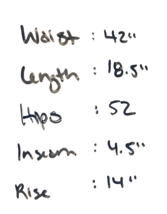 Waist : 42"
Length : 18.5"
Hips : 52
Inseam : 4.5"
Rise : 14"